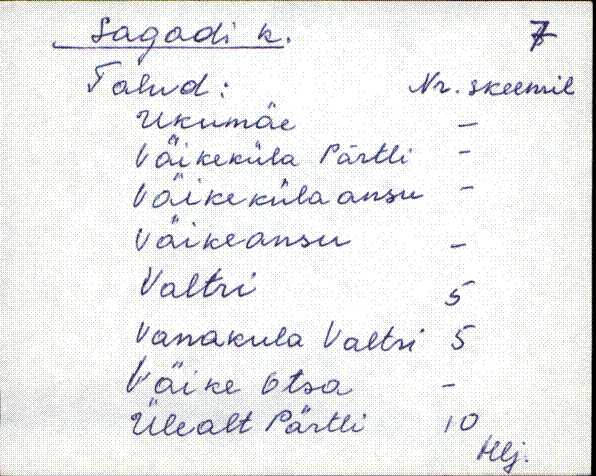 Sagadi k. 7
Talud: Nr. skeemil
Ukumäe -
Väikeküla Pärtli -
Väikeküla ansu -
Väikeansu -
Valtri 5
Vanakula Valtri 5
Väike Otsa -
Ülealt Pärtli 10
Hlj.